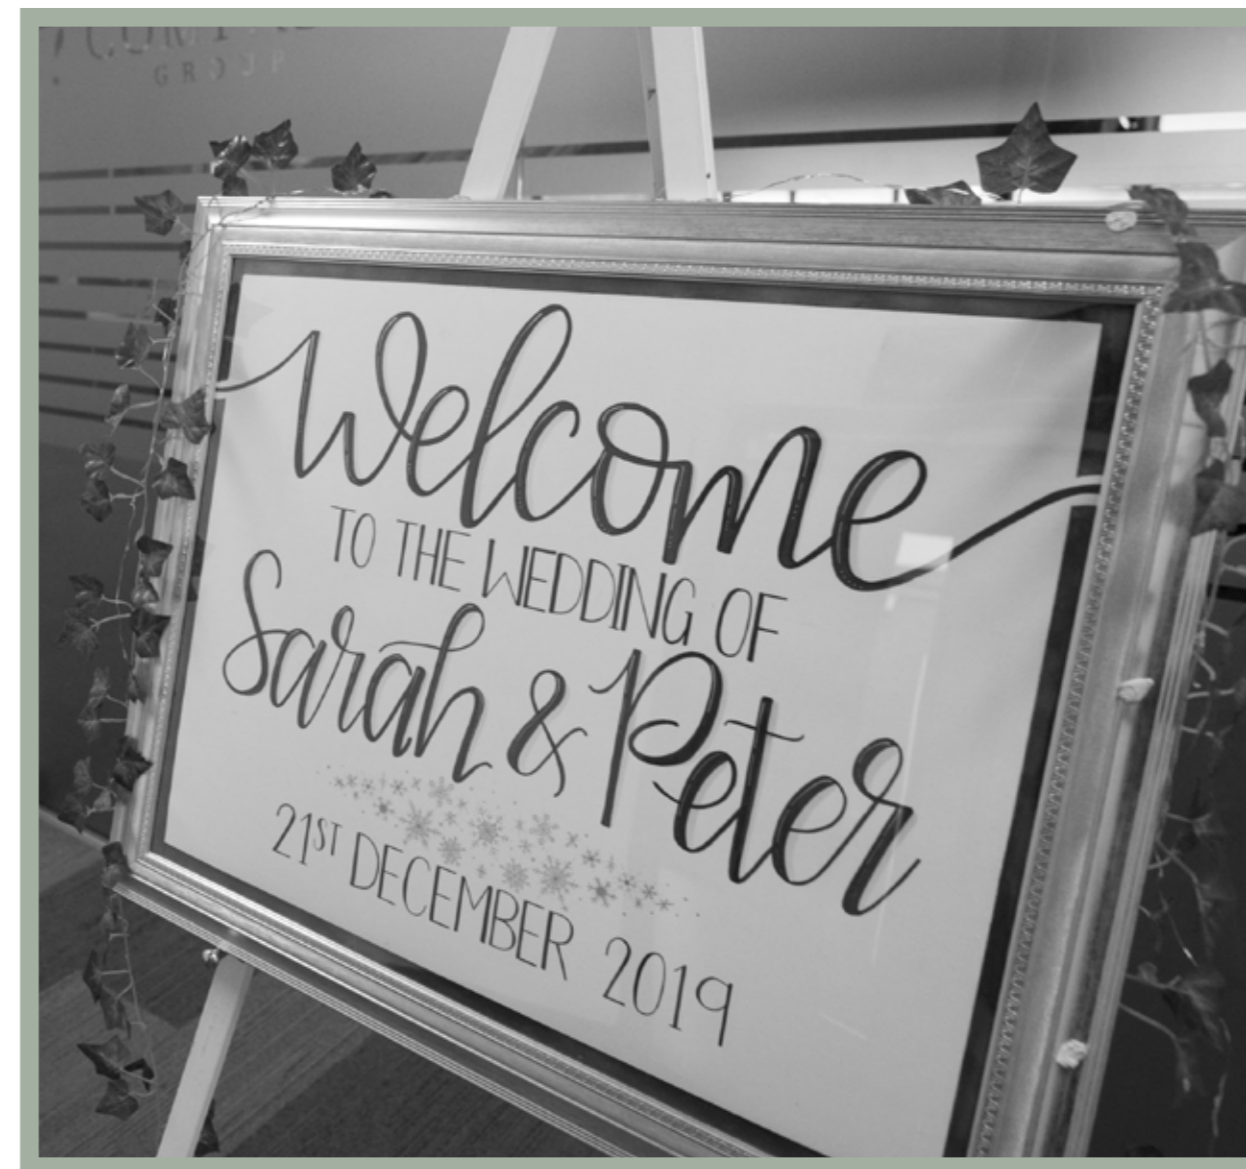 GROUP
Welcome
TO THE WEDDING OF
Sarah & Peter
21ST DECEMBER 2019